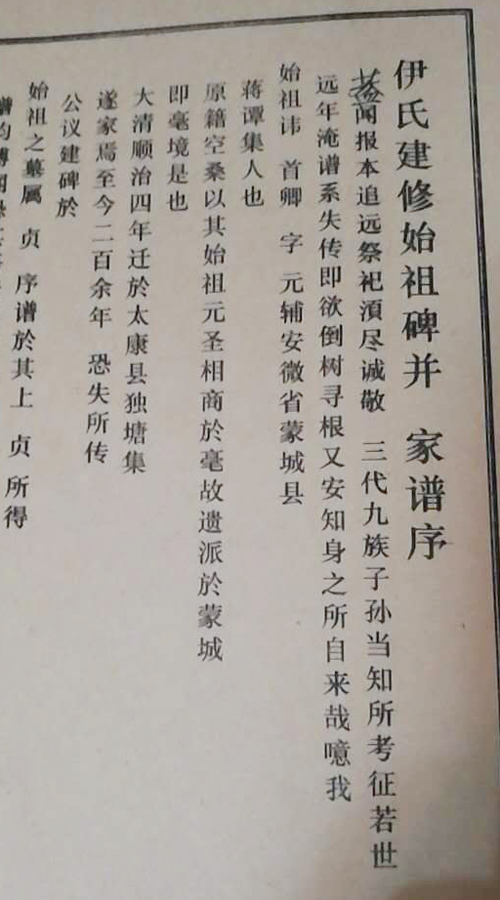 伊氏建修始祖碑并 家谱序
盖闻报本追远祭祀湏尽诚敬 三代九族子孙当知所考征若世
远年淹谱系失传即欲倒树寻根又安知身之所自来哉噫我
始祖讳 首卿 字 元辅安微省蒙城县
蒋谭集人也
原籍空桑以其始祖元圣相商於毫故遗派於蒙城
即毫境是也
大清顺治四年迁於太康县独塘集
遂家焉至今二百余年 恐失所传
公议建碑於
始祖之墓属 贞 序谱於其上 贞 所得